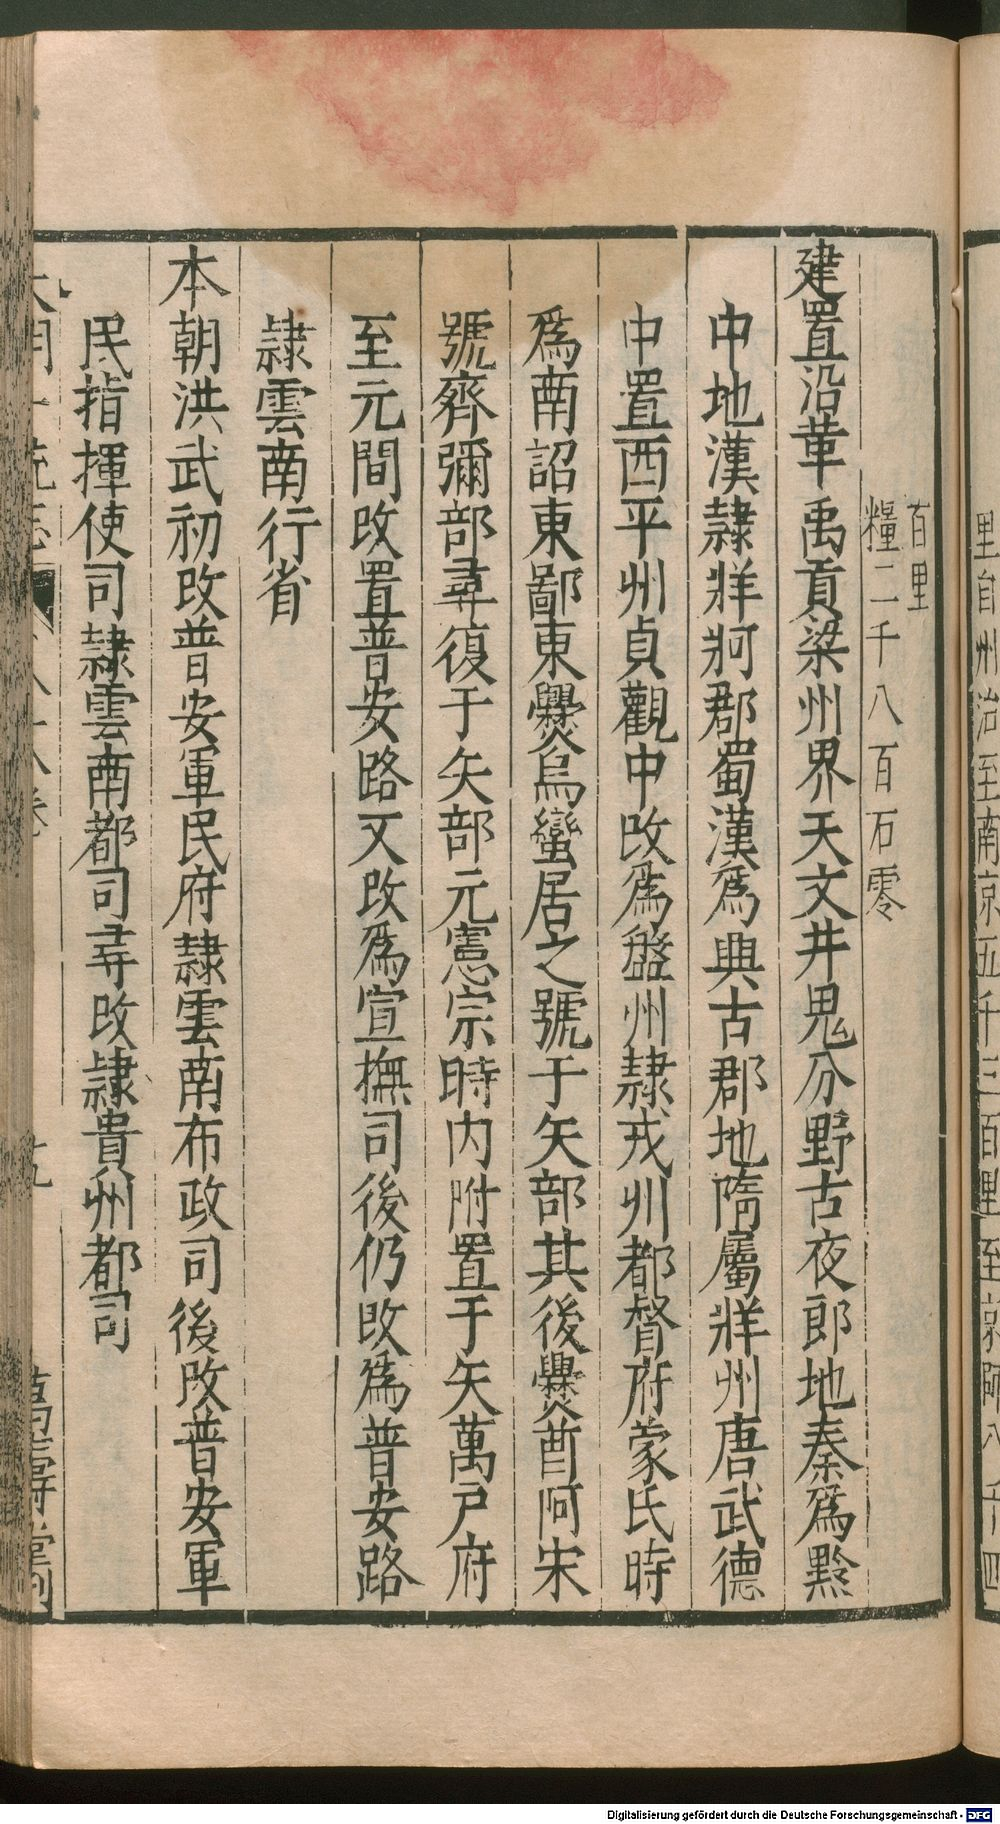 百里
糧二千八百石零
建置沿革禹貢梁州界天文井鬼分野古夜郎地秦爲黔
中地漢隸牂牁郡蜀漢爲興古郡地隋屬牂州唐武德
中置西平州貞觀中改爲盤州隸戎州都督府蒙氏時
爲南詔東鄙東爨烏蠻居之號于矢部其後爨酋阿宋
號齊彌部尋復于矢部元憲宗時内附置于矢萬戸府
至元間改置普安路又改爲宣撫司後仍改爲普安路
隸雲南行省
本朝洪武初改普安軍民府隸雲南布政司後改普安軍
民指揮使司隸雲南都司尋改隸貴州都司
里自州治至南京五千三百里至京師八千四
Digitalisierung gefördert durch die Deutsche Forschungsgemeinschaft - DFG